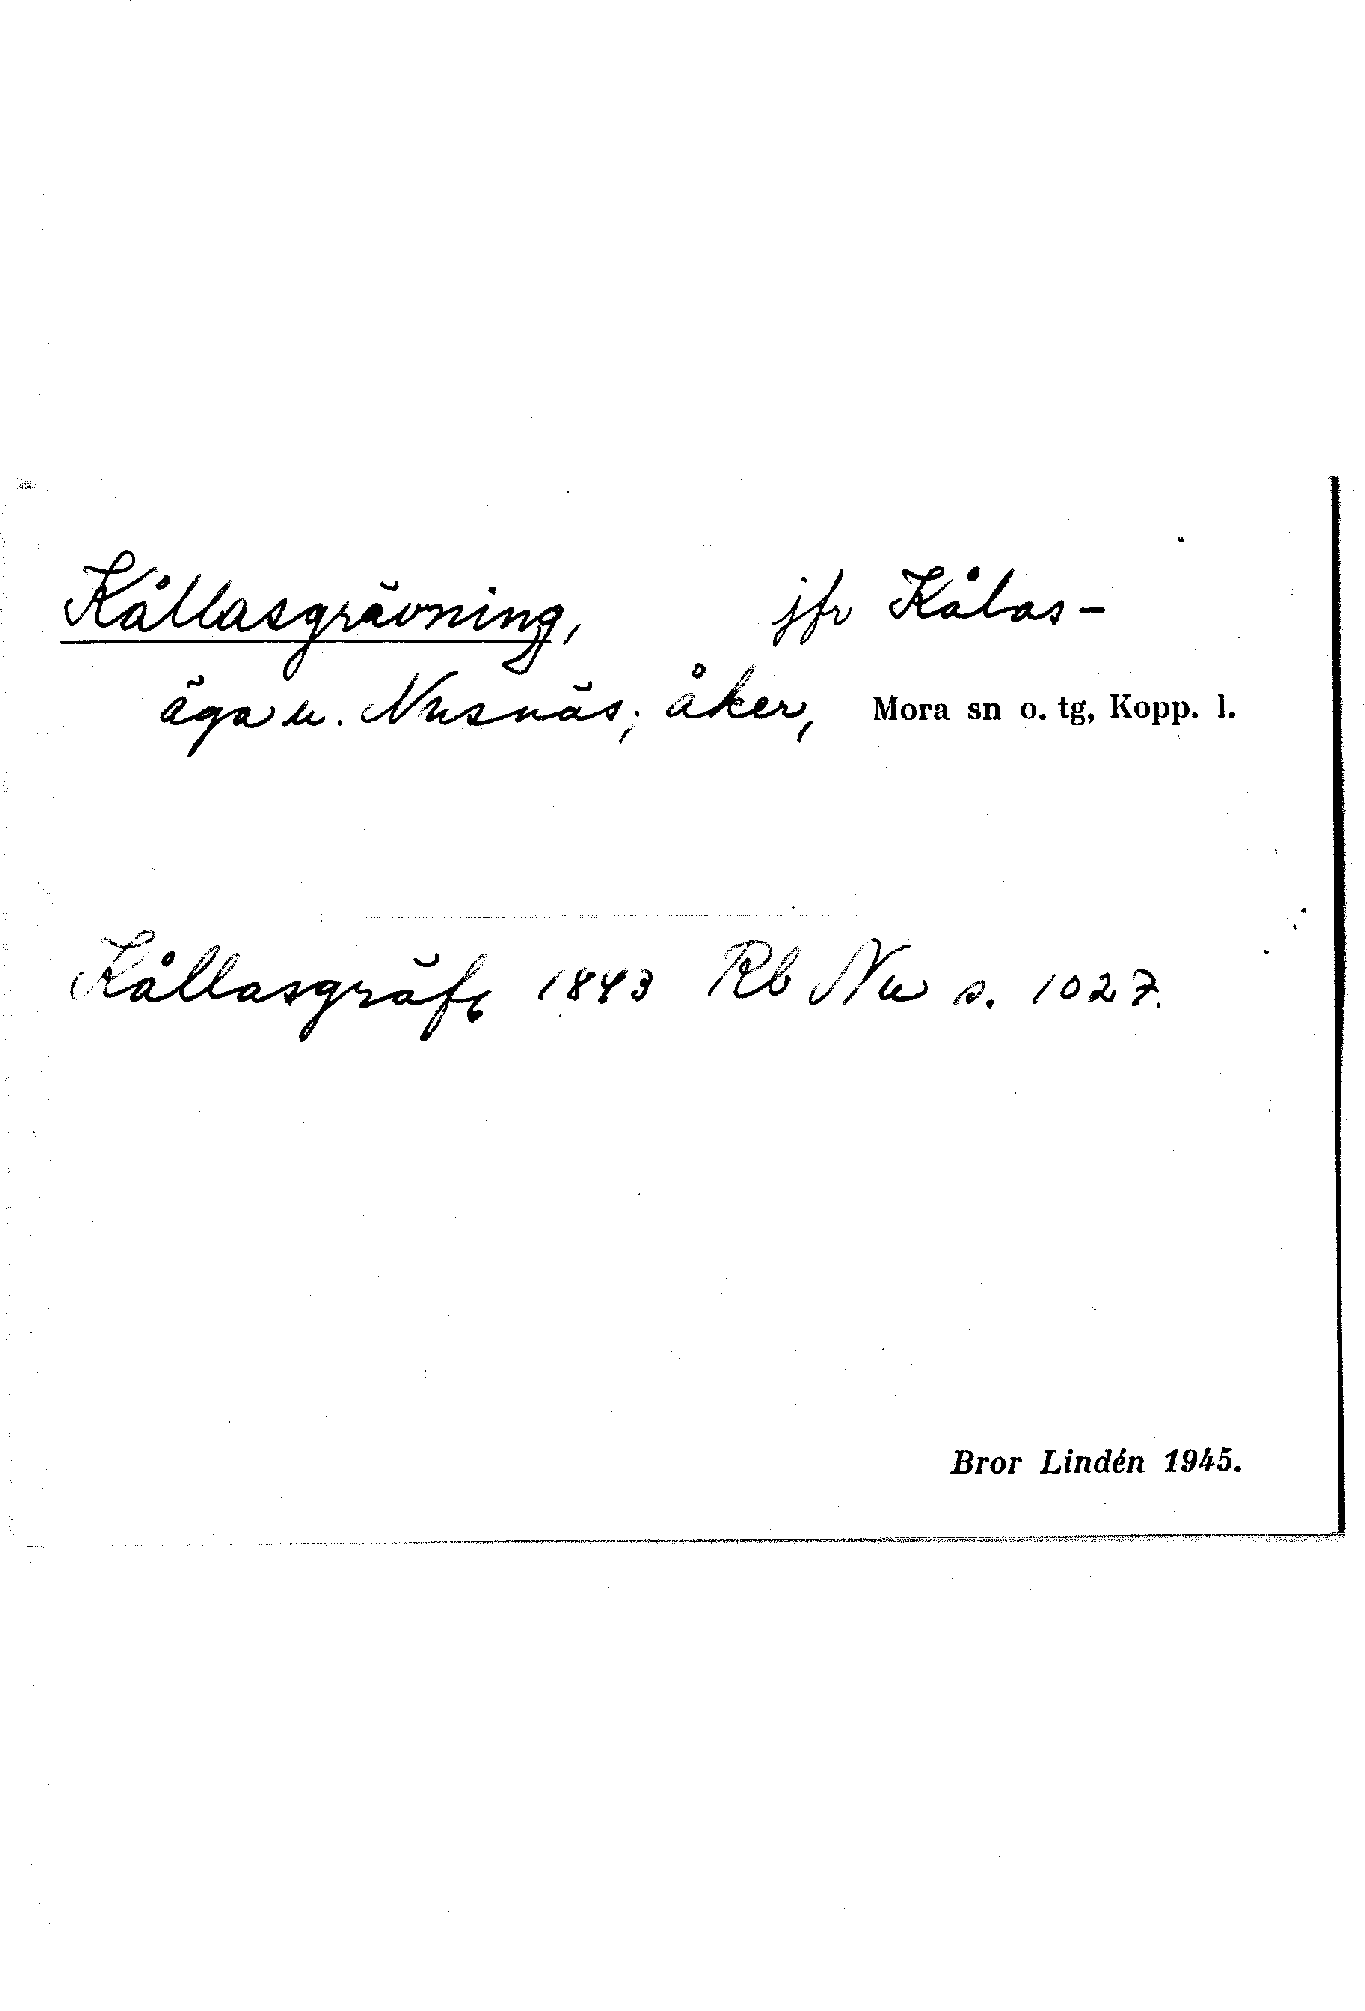 Kållasgrävning, jfr Kålas-
äga u. Nusnäs; åker, Mora sn o. tg, Kopp. l.
Kållasgräfn 1843 Rb Nu s. 1027.
Bror Lindén 1945.